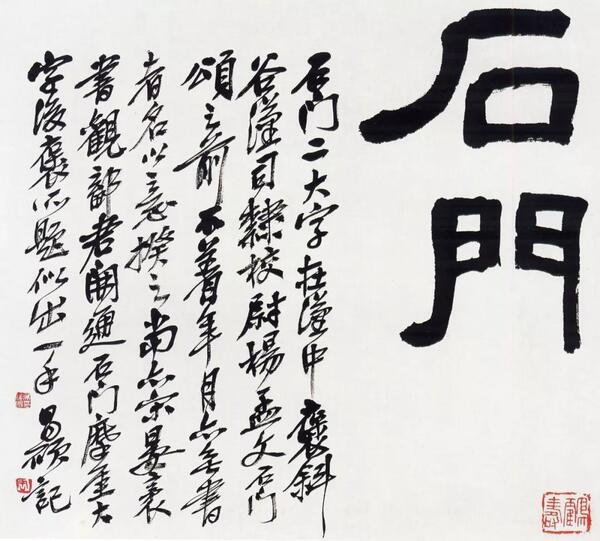 石門
石门二大字在漢中褒斜
谷漢司隸校尉楊孟文石门
頌之前不著年月亦无書
者名以意揆之當亦宋晏袤
書觀鄐君開通石门摩崖大
字後袤所題似出一手
記